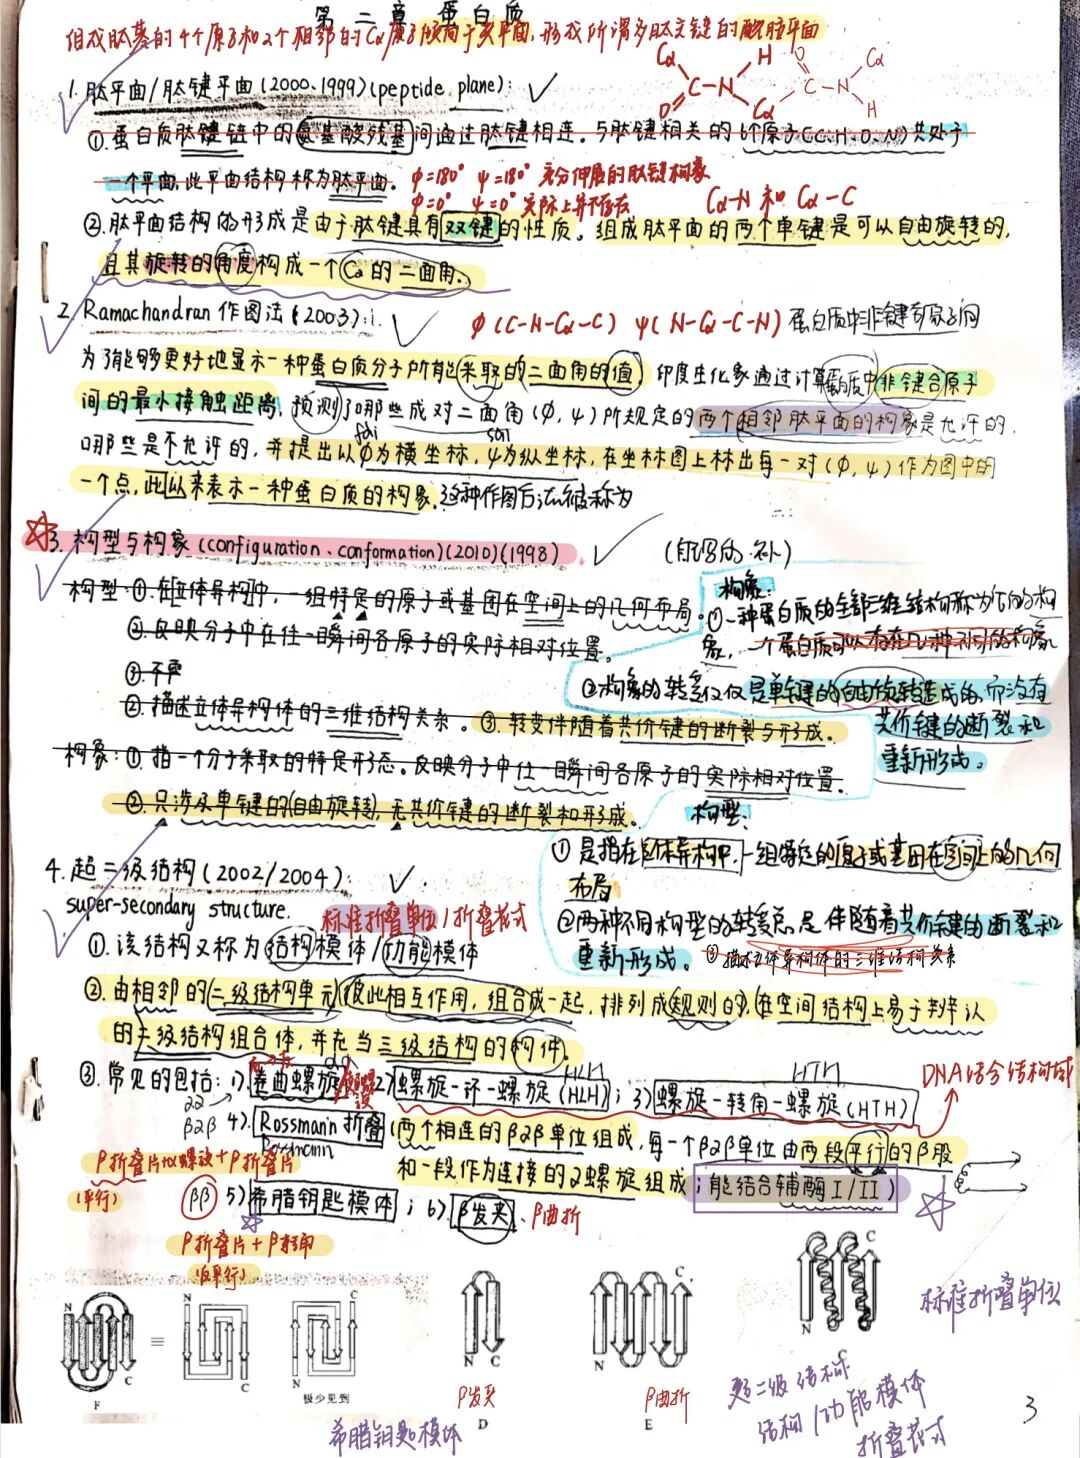 第二章 蛋白质
组成肽基的4个原子和2个相邻的Cα原子倾向于共平面，形成所谓多肽主链的酰胺平面
Cα H O Cα
C-N C-N
O Cα H
1. 肽平面/肽键平面(2000、1999)(peptide plane):
①.蛋白质肽键链中的氨基酸残基间通过肽键相连。与肽键相关的6个原子(C.C.H.O.N)共处于
一个平面,此平面结构称为肽平面。 φ=180° ψ=180° 充分伸展的肽链构象
φ=0° ψ=0° 实际上并不存在 Cα-N 和 Cα-C
②.肽平面结构的形成是由于肽键具有双键的性质。组成肽平面的两个单键是可以自由旋转的,
且其旋转的角度构成一个Cα的二面角。
2. Ramachandran 作图法(2003): φ(C-N-Cα-C) ψ(N-Cα-C-N) 蛋白质中非键合原子间
为了能够更好地显示一种蛋白质分子所能采取的二面角的值,印度生化家通过计算蛋白质中非键合原子
间的最小接触距离,预测了哪些成对二面角(φ,ψ)所规定的两个相邻肽平面的构象是允许的,
fai sai
哪些是不允许的,并提出以φ为横坐标,ψ为纵坐标,在坐标图上标出每一对(φ,ψ)作为图中的
一个点,此以来表示一种蛋白质的构象,这种作图方法被称为
3. 构型与构象(configuration、conformation)(2010)(1998)
构型:①.在立体异构中,一组特定的原子或基团在空间上的几何布局。
②.反映分子中在任一瞬间各原子的实际相对位置。
③.不要
②.描述立体异构体的三维结构关系。③.转变伴随着共价键的断裂与形成。
构象:①.指一个分子采取的特定形态。反映分子中任一瞬间各原子的实际相对位置。
②.只涉及单键的(自由旋转),无共价键的断裂和形成。
构象:
①一种蛋白质的全部三维结构称为它的构
象, 一个蛋白质可以存在几种不同的构象
②构象的转变仅仅是单键的自由旋转造成的,而没有
共价键的断裂和
重新形成。
构型:
①是指在立体异构中,一组特定的原子或基团在空间上的几何
布局
②两种不同构型的转变总是伴随着共价键的断裂和
重新形成。 ③描述立体异构体的三维结构关系
4. 超二级结构(2002/2004):
super-secondary structure. 标准折叠单位/折叠花式
①.该结构又称为结构模体/功能模体
②.由相邻的二级结构单元彼此相互作用,组合成一起,排列成规则的,在空间结构上易于辨认
的二级结构组合体,并充当三级结构的构件。
③.常见的包括:1).卷曲螺旋 2)螺旋-环-螺旋(HLH); 3)螺旋-转角-螺旋(HTH)
HLH HTH DNA结合结构域
αα
βαβ 4).Rossmann折叠(两个相连的βαβ单位组成,每一个βαβ单位由两段平行的β股
Rossmann
β折叠片+α螺旋+β折叠片 和一段作为连接的α螺旋组成;能结合辅酶I/II)
(平行) ββ 5)希腊钥匙模体; 6).β发夹、β曲折
β折叠片+β转角
(反平行)
N C F
≡
N C
C N 极少见到
希腊钥匙模体
N C
β发夹
D
N C
β曲折
E
N C
标准折叠单位
C
超二级结构
结构/功能模体
折叠花式
3